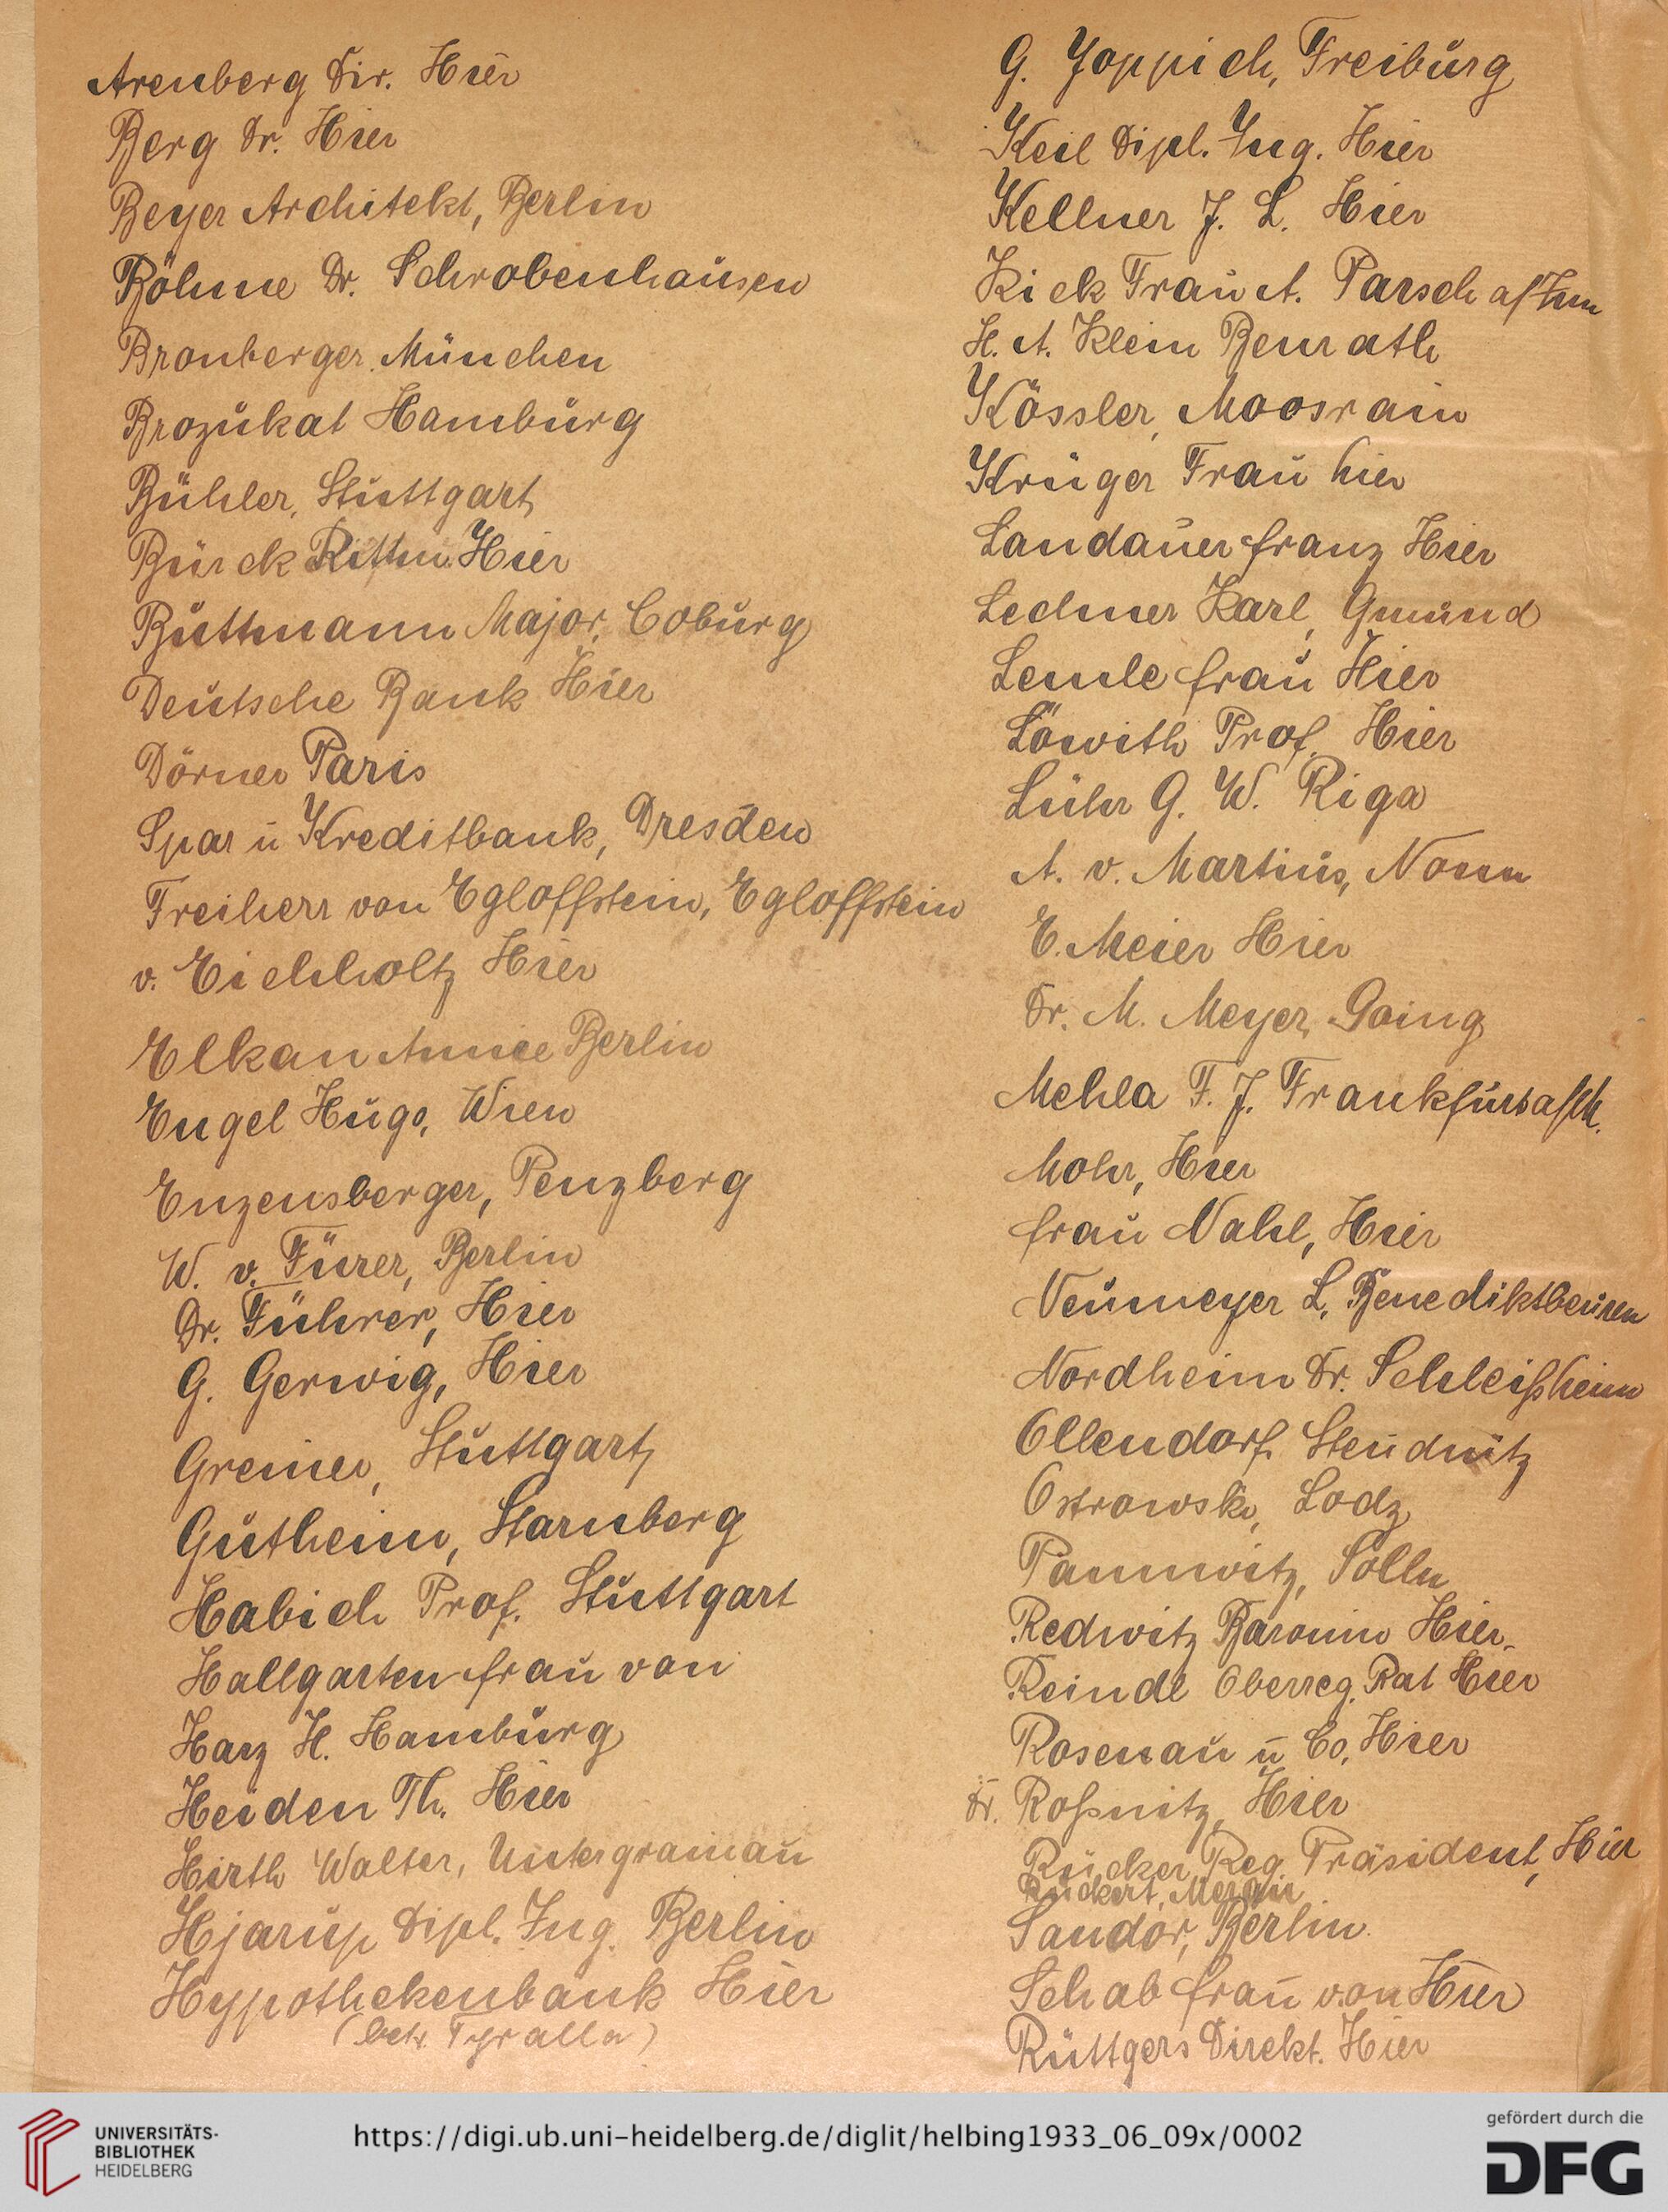 Arenberg Dir. Hier
Berg Dr. Hier
Beyer Architekt, Berlin
Böhme Dr. Schrobenhausen
Bronberger München
Brozukat Hamburg
Bühler, Stuttgart
Bürck Rittm. Hier
Buttmann Major, Coburg
Deutsche Bank Hier
Dörner Paris
Spar u Kreditbank, Dresden
Freiherr von Egloffstein, Egloffstein
v. Eichholtz Hier
Elkan Annie Berlin
Engel Hugo, Wien
Enzensberger, Penzberg
W. v. Fürer, Berlin
Dr. Führer, Hier
G. Gerwig, Hier
Greiner, Stuttgart
Gutheim, Starnberg
Habich Prof. Stuttgart
Hallgarten frau von
Harz H. Hamburg
Heiden Th. Hier
Hirth Walter, Untergrainau
Hjarup Dipl. Ing. Berlin
Hypothekenbank Hier
(betr. Tyralla)
G. Joppich, Freiburg
Keil Dipl. Ing. Hier
Kellner J. L. Hier
Kick Frau A. Parsch
H. A. Klein Benrath
Kössler, Moosrain
Krüger Frau hier
Landauer franz Hier
Lechner Karl, Gmünd
Lemle frau Hier
Löwith Prof. Hier
Lühr G. W. Riga
A. v. Martius, Nonn
E. Meier Hier
Dr. M. Meyer, Going
Mehla F. J. Frankfurt a/M.
Mohr, Hier
frau Nahl, Hier
Neumeyer L. Benediktbeuren
Nordheim Dr. Schleißheim
Ollendorf Steudnitz
Ostrowski, Lodz
Pannwitz, Solln
Redwitz Baronin Hier
Reindl Oberreg. Rat Hier
Rosenau u Co, Hier
Dr. Roßnitz, Hier
Rücker, Reg. Präsident, Hier
Rückert, Meran
Sandor, Berlin
Schab frau von Hier
Rüttgers Direkt. Hier
UNIVERSITÄTS-
BIBLIOTHEK
HEIDELBERG
https://digi.ub.uni-heidelberg.de/diglit/helbing1933_06_09x/0002
gefördert durch die
DFG